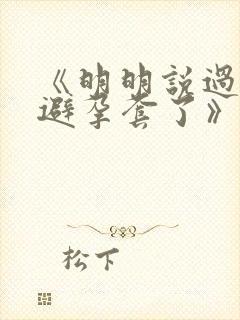 《明明説過
避孕套了》
松下